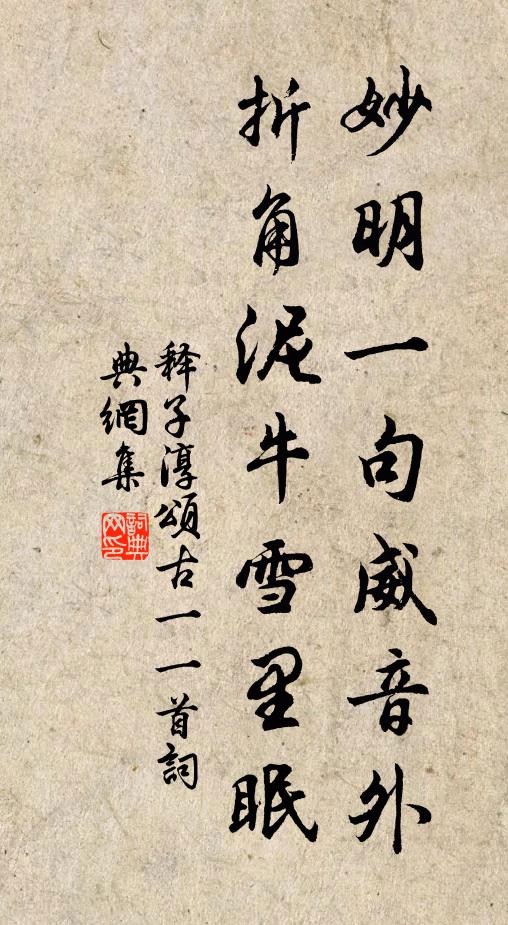 妙明一句威音外
折角泥牛雪里眠
释子淳頌古一一首詞
典網集
詞典
网印